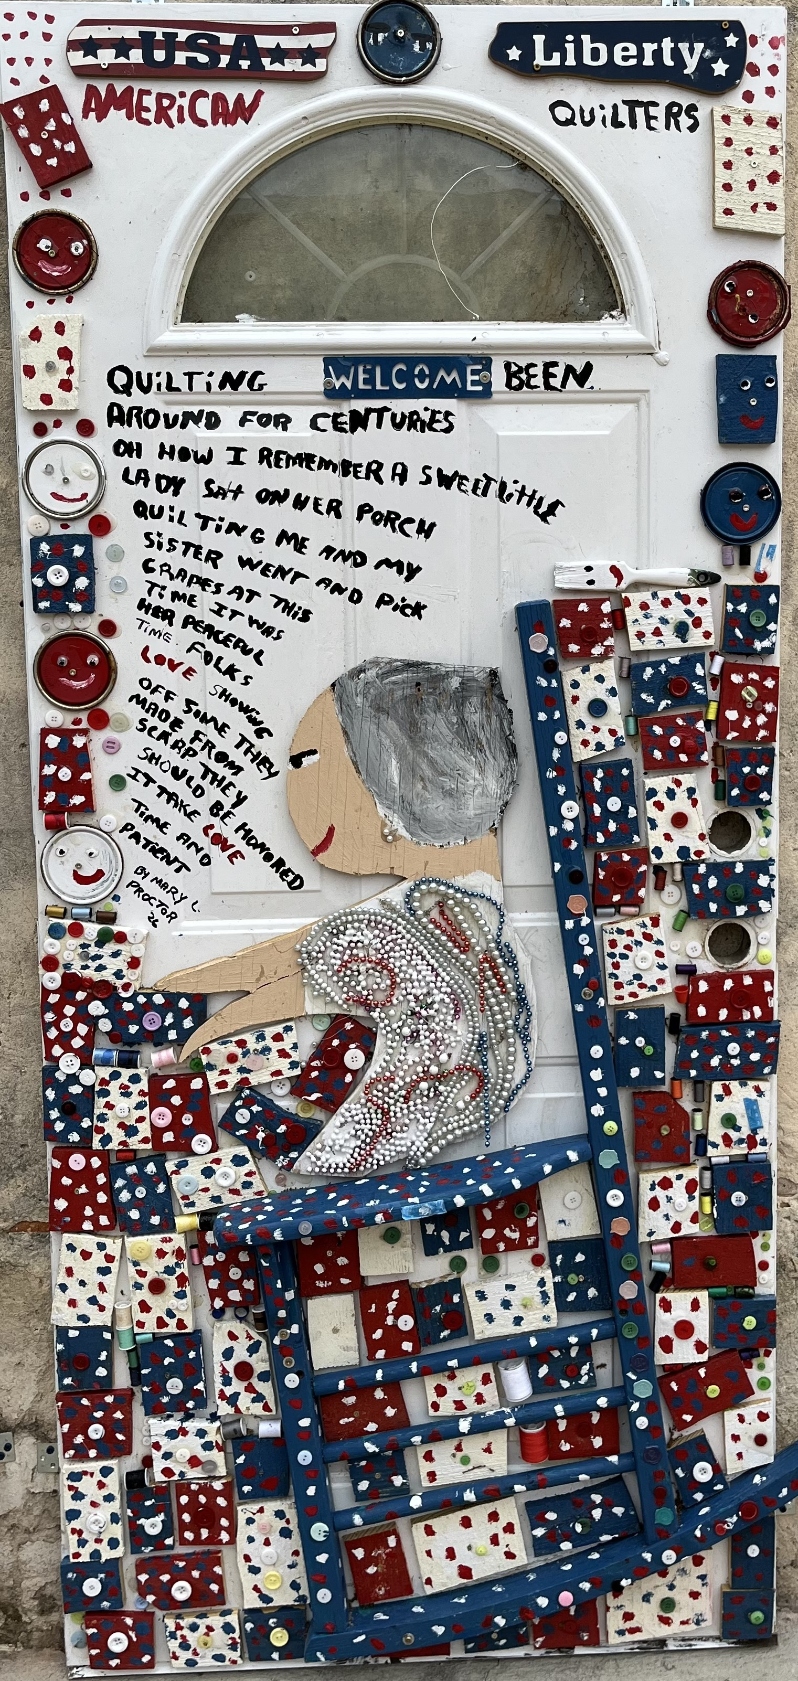 USA Liberty
AMERICAN QUILTERS
QUILTING WELCOME BEEN
AROUND FOR CENTURIES
OH HOW I REMEMBER A SWEET LITTLE
LADY SAT ON HER PORCH
QUILTING ME AND MY
SISTER WENT AND PICK
GRAPES AT THIS
TIME IT WAS
HER PEACEFUL
TIME. FOLKS
LOVE SHOWING
OFF SOME THEY
MADE FROM
SCRAP THEY
SHOULD BE HONORED
IT TAKE LOVE
TIME AND
PATIENT
BY MARY L.
PROCTOR
26